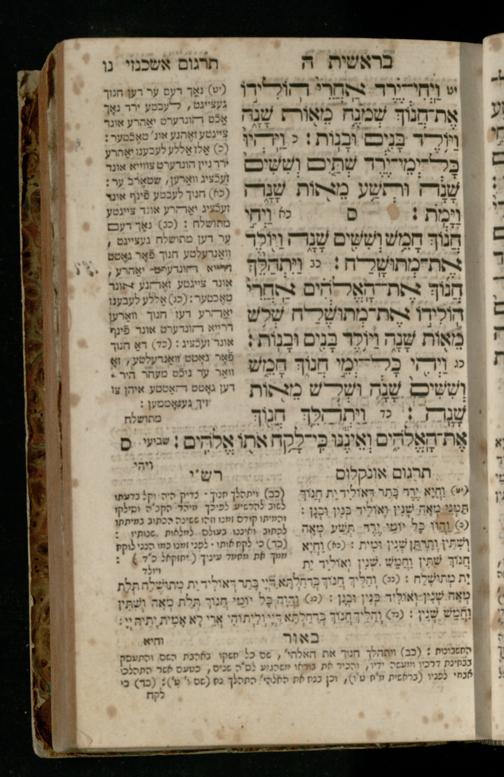 תרגום אשכנזי נו
בראשית ה
יט וַיְחִי־יֶרֶד אַחֲרֵי הוֹלִידוֹ
אֶת־חֲנוֹךְ שְׁמֹנֶה מֵאוֹת שָׁנָה
וַיּוֹלֶד בָּנִים וּבָנוֹת : כ וַיִּהְיוּ
כָּל־יְמֵי־יֶרֶד שְׁתַּיִם וְשִׁשִּׁים
שָׁנָה וּתְשַׁע מֵאוֹת שָׁנָה
וַיָּמֹת : ס כא וַיְחִי
חֲנוֹךְ חָמֵשׁ וְשִׁשִּׁים שָׁנָה וַיּוֹלֶד
אֶת־מְתוּשָׁלַח : כב וַיִּתְהַלֵּךְ
חֲנוֹךְ אֶת־הָאֱלֹהִים אַחֲרֵי
הוֹלִידוֹ אֶת־מְתוּשֶׁלַח שְׁלֹשׁ
מֵאוֹת שָׁנָה וַיּוֹלֶד בָּנִים וּבָנוֹת :
כג וַיְהִי כָּל־יְמֵי חֲנוֹךְ חָמֵשׁ
וְשִׁשִּׁים שָׁנָה וּשְׁלֹשׁ מֵאוֹת
שָׁנָה : כד וַיִּתְהַלֵּךְ חֲנוֹךְ
אֶת־הָאֱלֹהִים וְאֵינֶנּוּ כִּי־לָקַח אֹתוֹ אֱלֹהִים : שביעי ס
ויהי
(יט) נאָך דעם ער דען חנוך
געצייגט, לעבטע ירד נאָך
אַכט הונדערט יאהרע אונד
צייגטע זאֶהנע אונ' טאֶכטער :
(כ) אַלזאָ אַללע לעבענס יאהרע
ירד ניין הונדערט צווייא אונד
זעכציג וואַרען, שטאַרב ער :
(כא) חנוך לעבטע פינף אונד
זעכציג יאהרע אונד צייגטע
מתושלח : (כב) נאָך דעם
ער דען מתושלח געצייגט,
וואַנדעלטע חנוך פֿאָר גאָטט
דרייא הונדערט יאהרע,
אונד צייגטע זאֶהנע אונד
טאֶכטער : (כג) אַללע לעבענס
יאהרע דעז חנוך וואַרען
דרייא הונדערט אונד פינף
אונד זעכציג : (כד) דאַ חנוך
פֿאָר גאָטט וואַנדעלטע, זאָ
וואַר ער ניכֿט מעהר היר ·
דען גאָטט האַטטע איהן צו
זיך גענאָממען :
מתושלח
תרגום אונקלוס
(יט) וַחֲיָא יֶרֶד בָּתַר דְּאוֹלִיד יָת חֲנוֹךְ
תְּמָנֵי מְאָה שְׁנִין וְאוֹלִיד בְּנִין וּבְנָן :
(כ) וַהֲווֹ כָּל יוֹמֵי יֶרֶד תְּשַׁע מְאָה
וְשִׁתִּין וְתַרְתֵּין שְׁנִין וּמִית : (כא) וַחֲיָא
חֲנוֹךְ שִׁתִּין וַחֲמֵשׁ שְׁנִין וְאוֹלִיד יָת
יָת מְתוּשָׁלַח : (כב) וְהַלִּיךְ חֲנוֹךְ בְּדַחַלְתָּא דַיְיָ בָּתַר דְּאוֹלִיד יָת מְתוּשֶׁלַח תְּלַת
מְאָה שְׁנִין וְאוֹלִיד בְּנִין וּבְנָן : (כג) וַהֲווֹ כָּל יוֹמֵי חֲנוֹךְ תְּלַת מְאָה וְשִׁתִּין
וַחֲמֵשׁ שְׁנִין : (כד) וְהַלִּיךְ חֲנוֹךְ בְּדַחַלְתָּא דַיְיָ וְלֵיתוֹהִי אֲרֵי לָא אֲמִית יָתֵיהּ יְיָ :
וחיא
רש״י
(כב) ויתהלך חנוך · צדיק היה וקל בדעתו
לשוב להרשיע לפיכך מיהר הקב״ה וסילקו
והמיתו קודם זמנו וזהו ששינה הכתוב במיתתו
לכתוב ואיננו בעולם למלאות שנותיו :
(כד) כי לקח אותו · לפני זמנו כמו הנני לוקח
ממך את מחמד עיניך (יחזקאל כ״ד) :
באור
החשבונות : (כב) ויתהלך חנוך את האלהי', שם כל חשקו באהבת השם והתעסק
בבחינת דרכיו ומעשה ידיו, והכיר את בוראו
אבתי לפניו (בראשית מ״ח ט״ו), וכן בנח את האלהי' התהלך נח (שם ו' ט') : (כד) כי
לקח